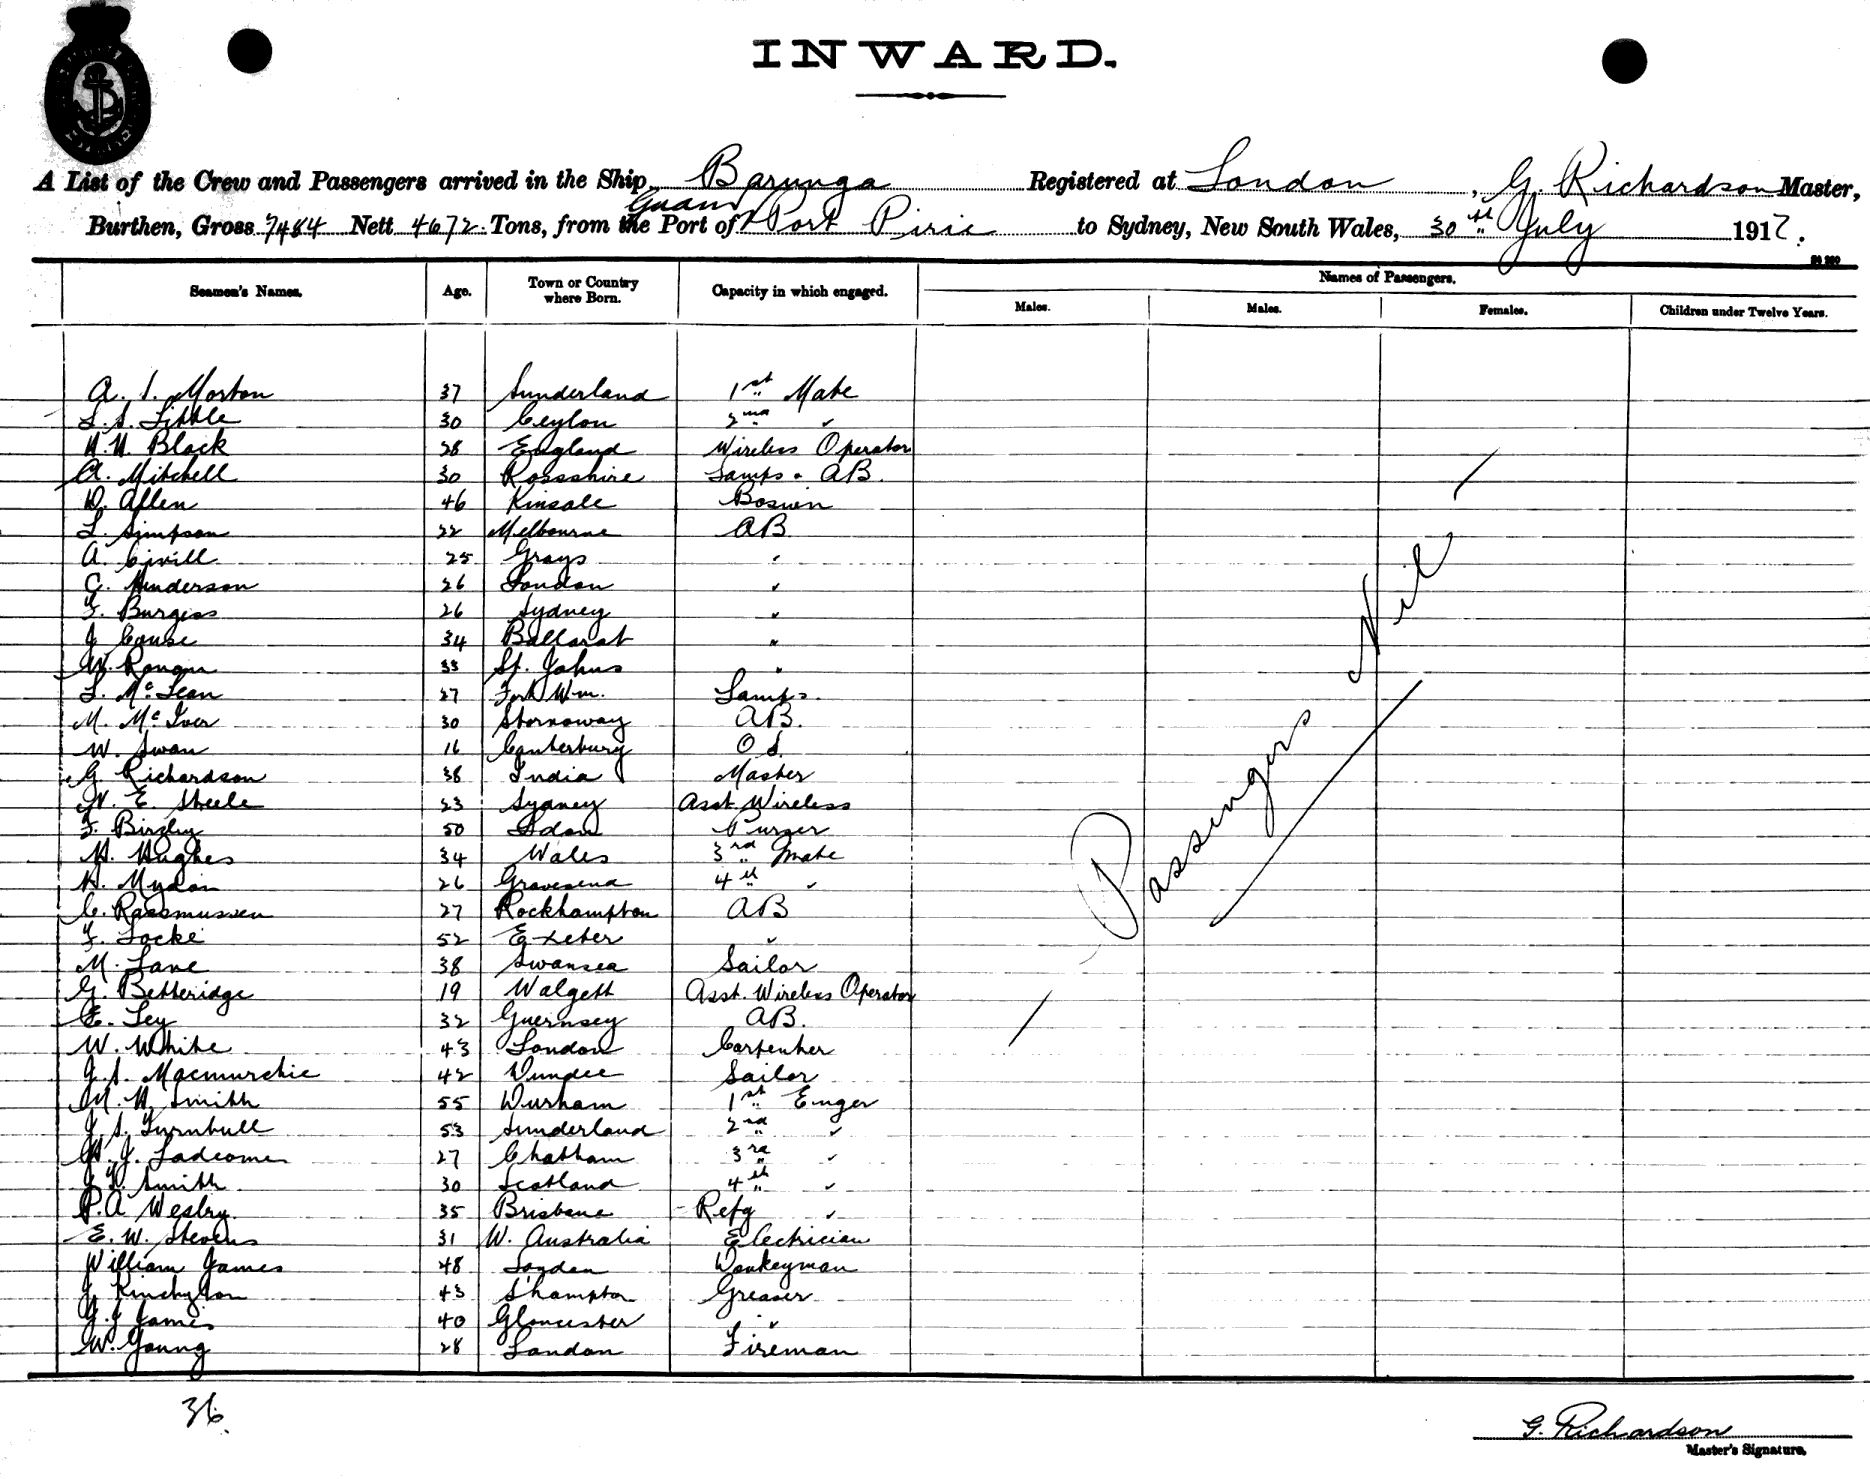 INWARD.
A List of the Crew and Passengers arrived in the Ship Barunga Registered at London, G. Richardson Master,
Guam
Burthen, Gross 7484 Nett 4672 Tons, from the Port of Port Pirie to Sydney, New South Wales, 30th July 1917.
Names of Passengers.
Seamen's Names. Age. Town or Country where Born. Capacity in which engaged. Males. Males. Females. Children under Twelve Years.
A. I. Morton 37 Sunderland 1st Mate
L. S. Little 30 Ceylon 2nd "
H. H. Black 28 England Wireless Operator
A. Mitchell 30 Rossshire Lamps & AB.
D. Allen 46 Kinsale Boswn
L. Simpson 22 Melbourne AB
A. Civill 25 Grays "
G. Henderson 26 London "
F. Burgiss 26 Sydney "
J Couse 34 Ballarat "
W. Ronan 33 St. Johns "
L. McLean 27 Fort Wm. Lamps.
M. McIver 30 Stornoway AB.
W. Swan 16 Canterbury O S.
G. Richardson 38 India Master
H. E. Steele 23 Sydney Asst. Wireless
F. 50 Purser
H. Hughes 34 Wales 3rd Mate
H. 26 Gravesend 4th "
C. Rassmussen 27 Rockhampton AB
F. Locke 52 Exeter "
M. Lane 38 Swansea Sailor
G. Betteridge 19 Walgett Asst. Wireless Operator
E. Ley 32 Guernsey AB.
W. White 43 London Carpenter
J. S. Macmurchie 42 Dundee Sailor
M. H. Smith 55 Durham 1st Enger
J. S. Turnbull 53 Sunderland 2nd "
H. J. Ladcome 27 Chatham 3rd "
J H. Smith 30 Scotland 4th "
P. A Wesley. 35 Brisbane Refg "
E. W. Stevens 31 W. Australia Electrician
William James 48 London Donkeyman
J. 43 S'hampton Greaser
G. J James 40 Gloucester "
W. Young 28 London Fireman
Passengers Nil
36.
G. Richardson
Master's Signature.